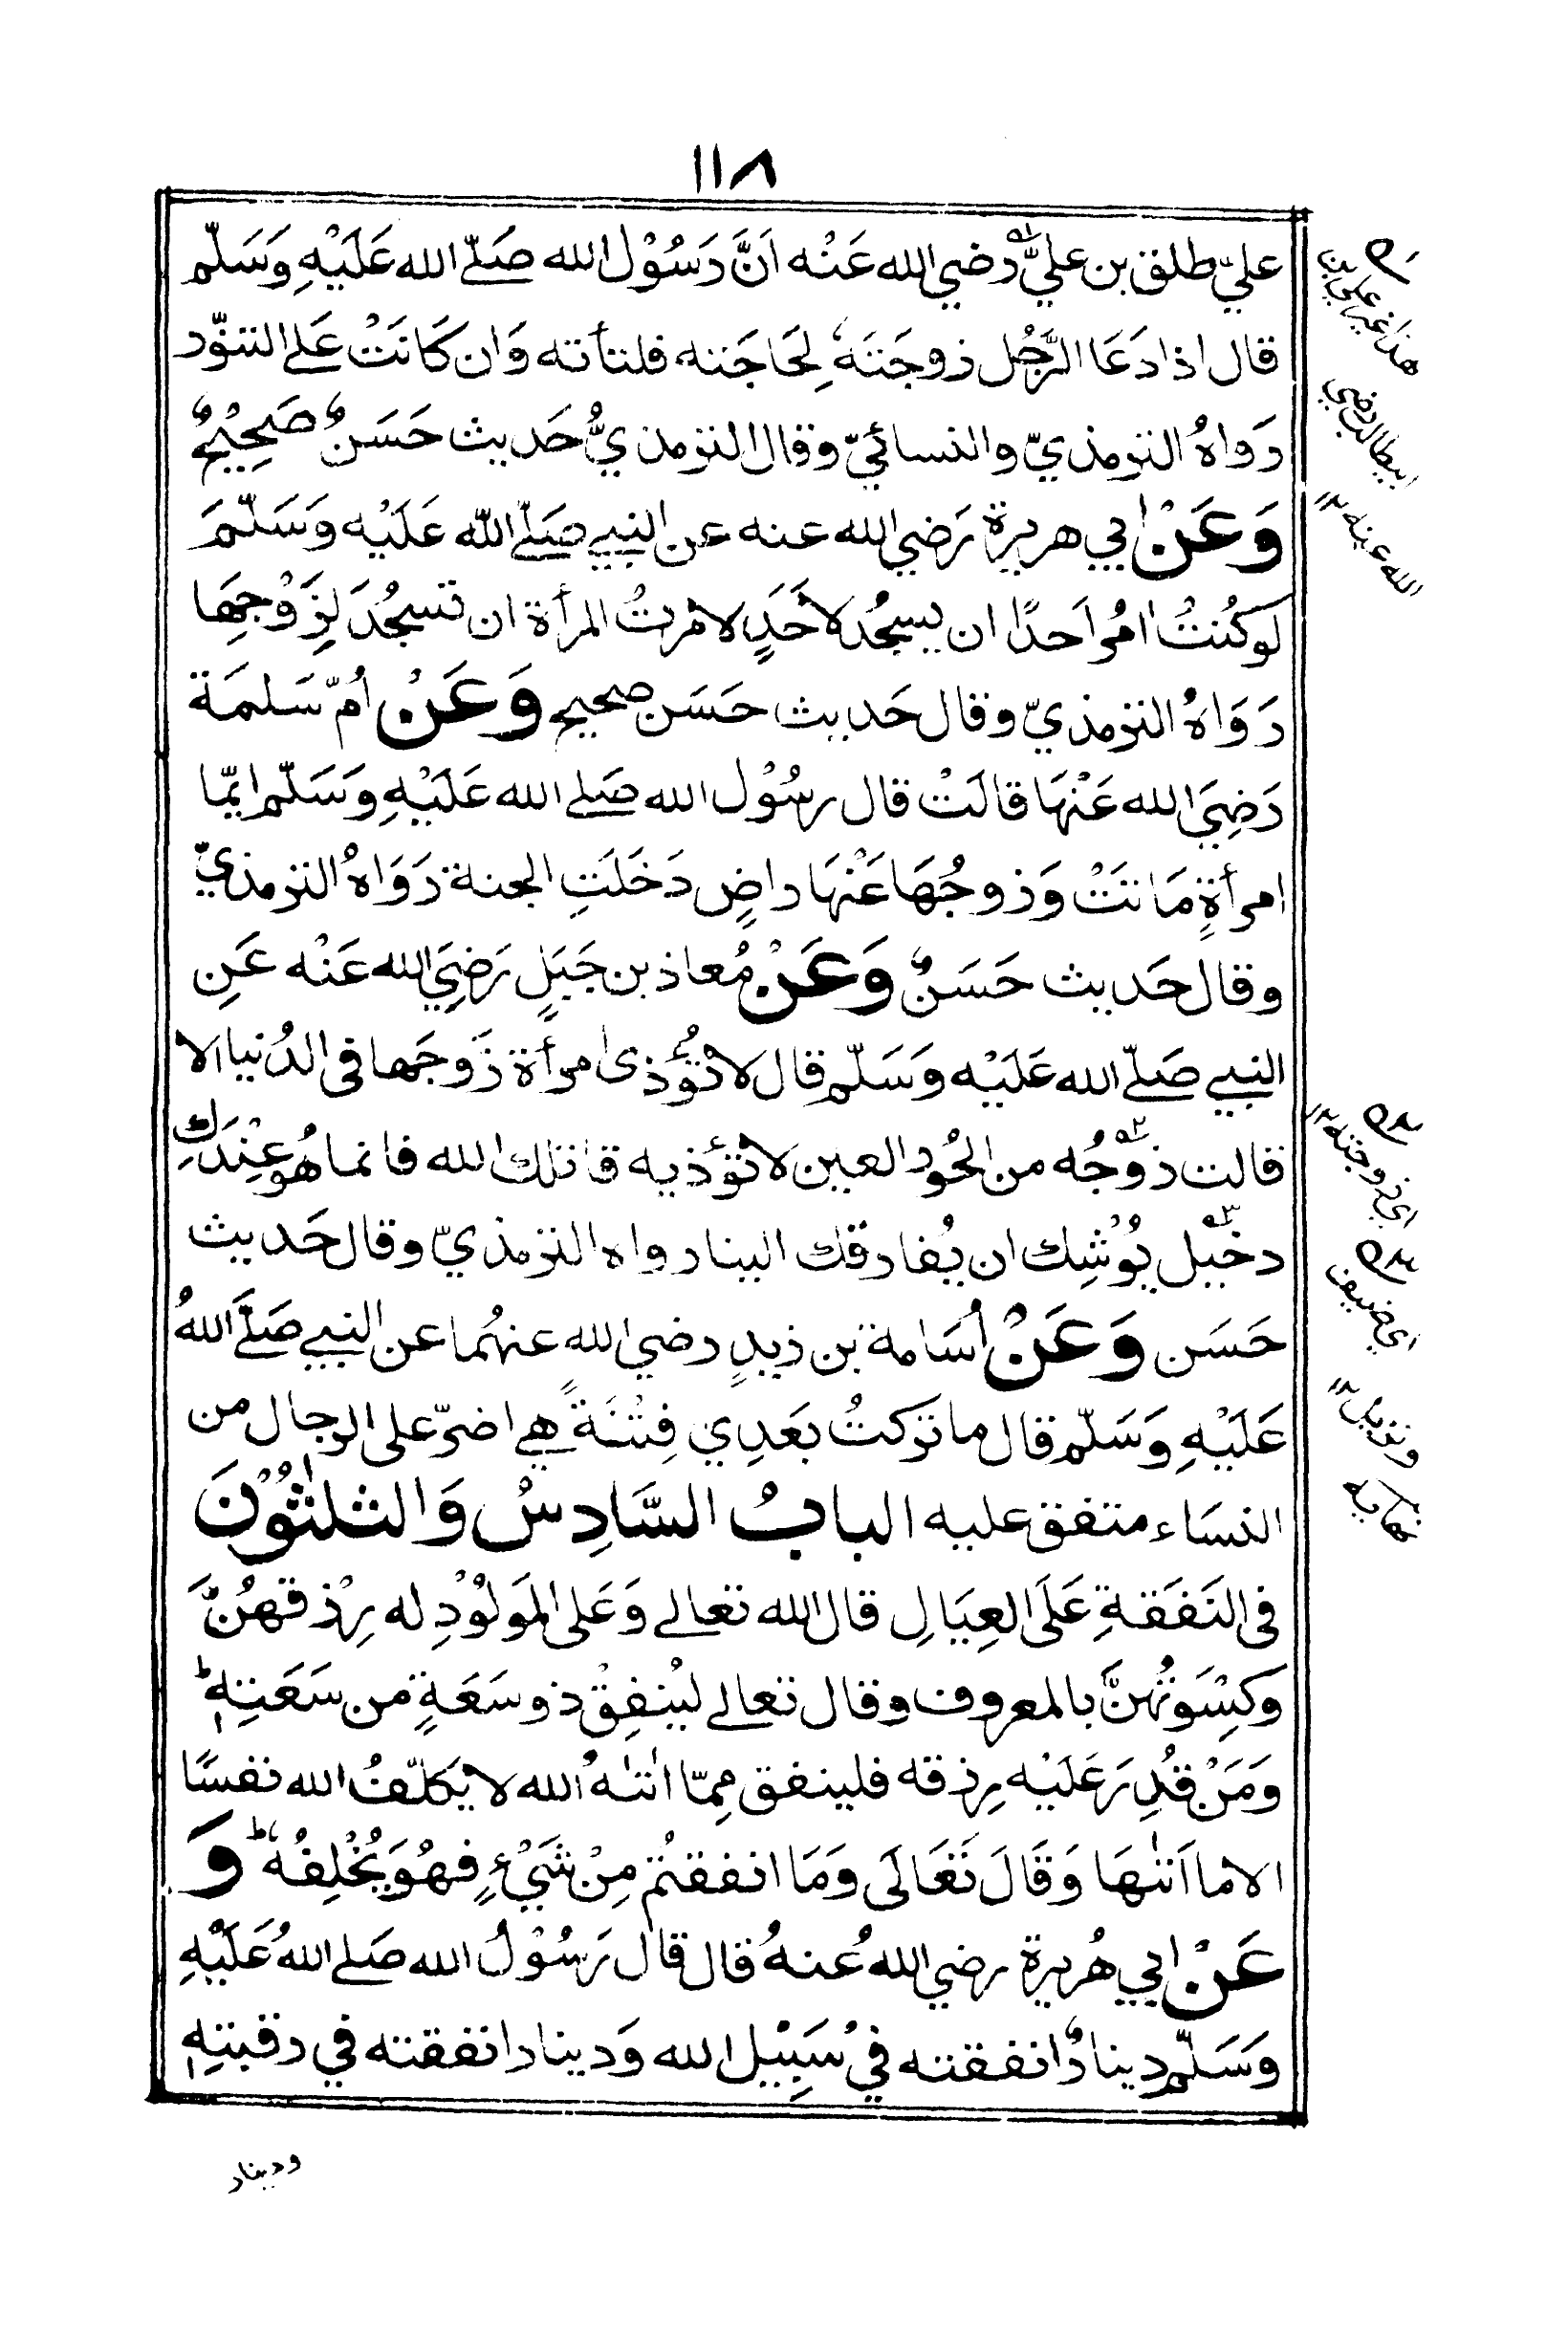 ١١٨
عليّ طلق بن عليّ رضي الله عَنْه اَنَّ رَسُوْل الله صَلّے الله عَلَيْهِ وَسَلّم
قال اذا دَعَا الرَّجُل زوجَتَهٗ لِحَاجَته فلتأته وَان كَانَتْ عَلے التنّور
رَوَاهُ الترمذيّ والنسائيّ وقال الترمذيُّ حَديث حَسَنٌ صَحِيْحٌ
وَعَنْ ابي هريرة رَضي الله عنه عن النبي صَلّے اللّه عَلَيْه وَسَلّمَ
لَو كُنتُ اٰمُر اَحدًا ان يسجُد لاَحَدٍ لامرتُ المرأة ان تسجُدَ لِزَوْجِهَا
رَوَاهُ الترمذيّ وقال حَديث حَسَن صحيح وَعَنْ اُمّ سَلمَة
رَضِيَ الله عَنْهَا قالَتْ قال رسُوْل الله صَلے الله عَلَيْهِ وَسَلّم ايّما
امرأةٍ مَاتَتْ وَزوجُهَا عَنْهَا راضٍ دَخَلَتِ الجنة رَوَاهُ الترمذيّ
وقال حَديث حَسَنٌ وَعَنْ مُعاذ بن جَبَلٍ رَضِيَ الله عَنْه عَنِ
النبي صَلّے الله عَلَيْه وَسَلّم قال لا تُؤذى امرأة زَوجَها فى الدُنيا الا
قالت زوْجُه من الحُور العين لا تؤذيه قاتلك الله فانما هُو عِنْدَكِ
دخَيل يُوْشِك ان يُفارقك الينا رواه الترمذيّ وقال حَديث
حَسَن وَعَنْ اُسَامة بن زيدٍ رضي الله عنهُما عن النبي صَلَّے اللهُ
عَلَيْهِ وَسَلّم قال ما تركتُ بَعَدِي فِتْنَةً هي اضرّ على الرجال من
النسَاء متفق عليه البابُ السَّادِسُ وَالثلٰثُوْنَ
فى النَفَقَةِ عَلَى العِيَالِ قال الله تعالے وَعَلى المَولُوْدِ له رِزْقهُنَّ
وَكِسْوَتُهنَّ بالمعروف وقال تعالے ليُنفِقْ ذو سَعَةٍ من سَعَتِهٖ ط
وَمَنْ قُدِرَ عَلَيْه رِزقه فلينفق مِمّا اٰتٰهُ الله لا يكلّفُ الله نفسًا
الا ما اٰتٰهَا وَقَالَ تَعَالَى وَمَا انفقتُم مِنْ شَيْءٍ فهُوَ يُخْلِفُهٗ ط وَ
عَنْ ابي هُريرة رضي اللهُ عنهُ قال قال رَسُوْلُ الله صَلے اللهُ عَلَيْهِ
وَسَلّم دينارٌ انفقته في سَبِيْل الله وَدينار انفقته في رقبتهٖ
ودينار
هذا غير علي بن
ابيطالب رضي
الله عنه ١٢
اي زوجته ١٢
اي ضيف
ونزيل ١٢
نهايه